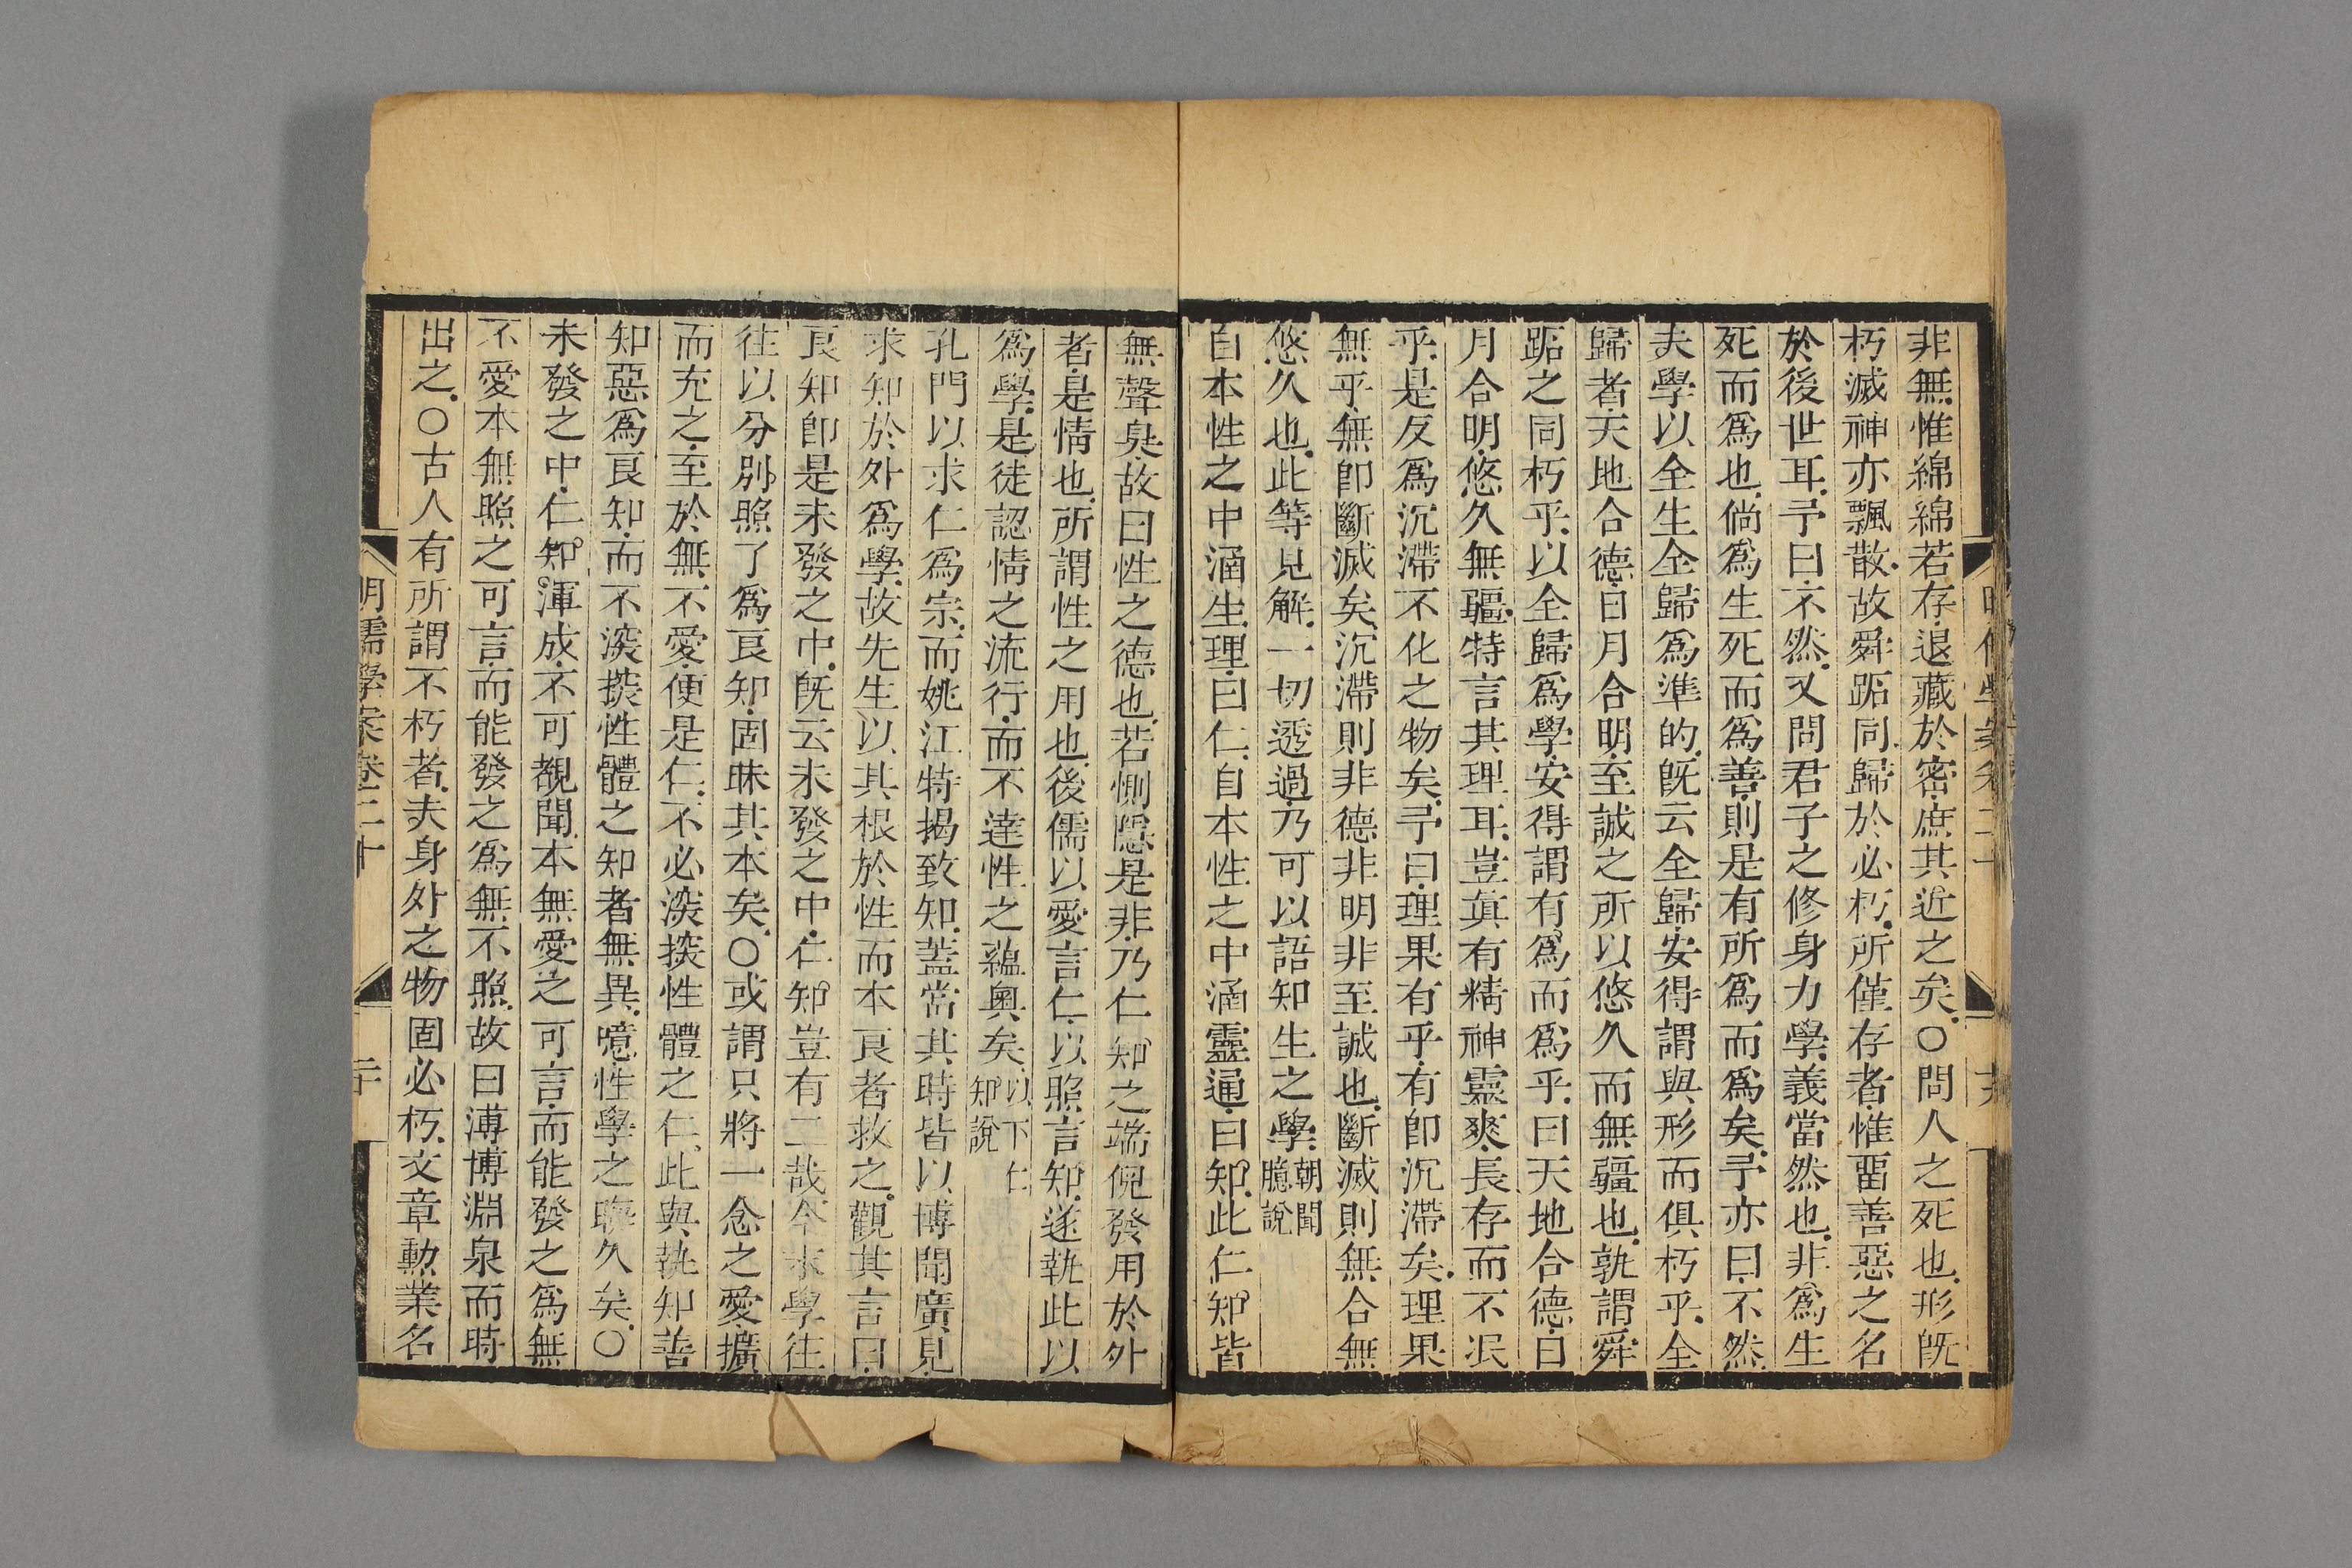 非無惟綿綿若存退藏於密庶其近之矣○問人之死也形旣
朽滅神亦飄散故舜跖同歸於必朽所僅存者惟畱善惡之名
於後世耳予曰不然又問君子之修身力學義當然也非爲生
死而爲也倘爲生死而爲善則是有所爲而爲矣予亦曰不然
夫學以全生全歸爲準的旣云全歸安得謂與形而俱朽乎全
歸者天地合德日月合明至誠之所以悠久而無疆也孰謂舜
跖之同朽乎以全歸爲學安得謂有爲而爲乎曰天地合德日
月合明悠久無疆特言其理耳豈眞有精神靈爽長存而不泯
乎是反爲沉滯不化之物矣予曰理果有乎有卽沉滯矣理果
無乎無卽斷滅矣沉滯則非德非明非至誠也斷滅則無合無
悠久也此等見解一切透過乃可以語知生之學朝聞臆說
自本性之中涵生理曰仁自本性之中涵靈通曰知此仁知皆
無聲臭故曰性之德也若惻隱是非乃仁知之端倪發用於外
者是情也所謂性之用也後儒以愛言仁以照言知遂執此以
爲學是徒認情之流行而不達性之蘊奧矣以下仁知說
孔門以求仁爲宗而姚江特揭致知蓋當其時皆以博聞廣見
求知於外爲學故先生以其根於性而本良者救之觀其言曰
良知卽是未發之中旣云未發之中仁知豈有二哉今末學往
往以分別照了爲良知固昧其本矣○或謂只將一念之愛擴
而充之至於無不愛便是仁不必深探性體之仁此與執知善
知惡爲良知而不深探性體之知者無異噫性學之晦久矣○
未發之中仁知渾成不可覩聞本無愛之可言而能發之爲無
不愛本無照之可言而能發之爲無不照故曰溥博淵泉而時
出之○古人有所謂不朽者夫身外之物固必朽文章勳業名
明儒學案卷二十
二十